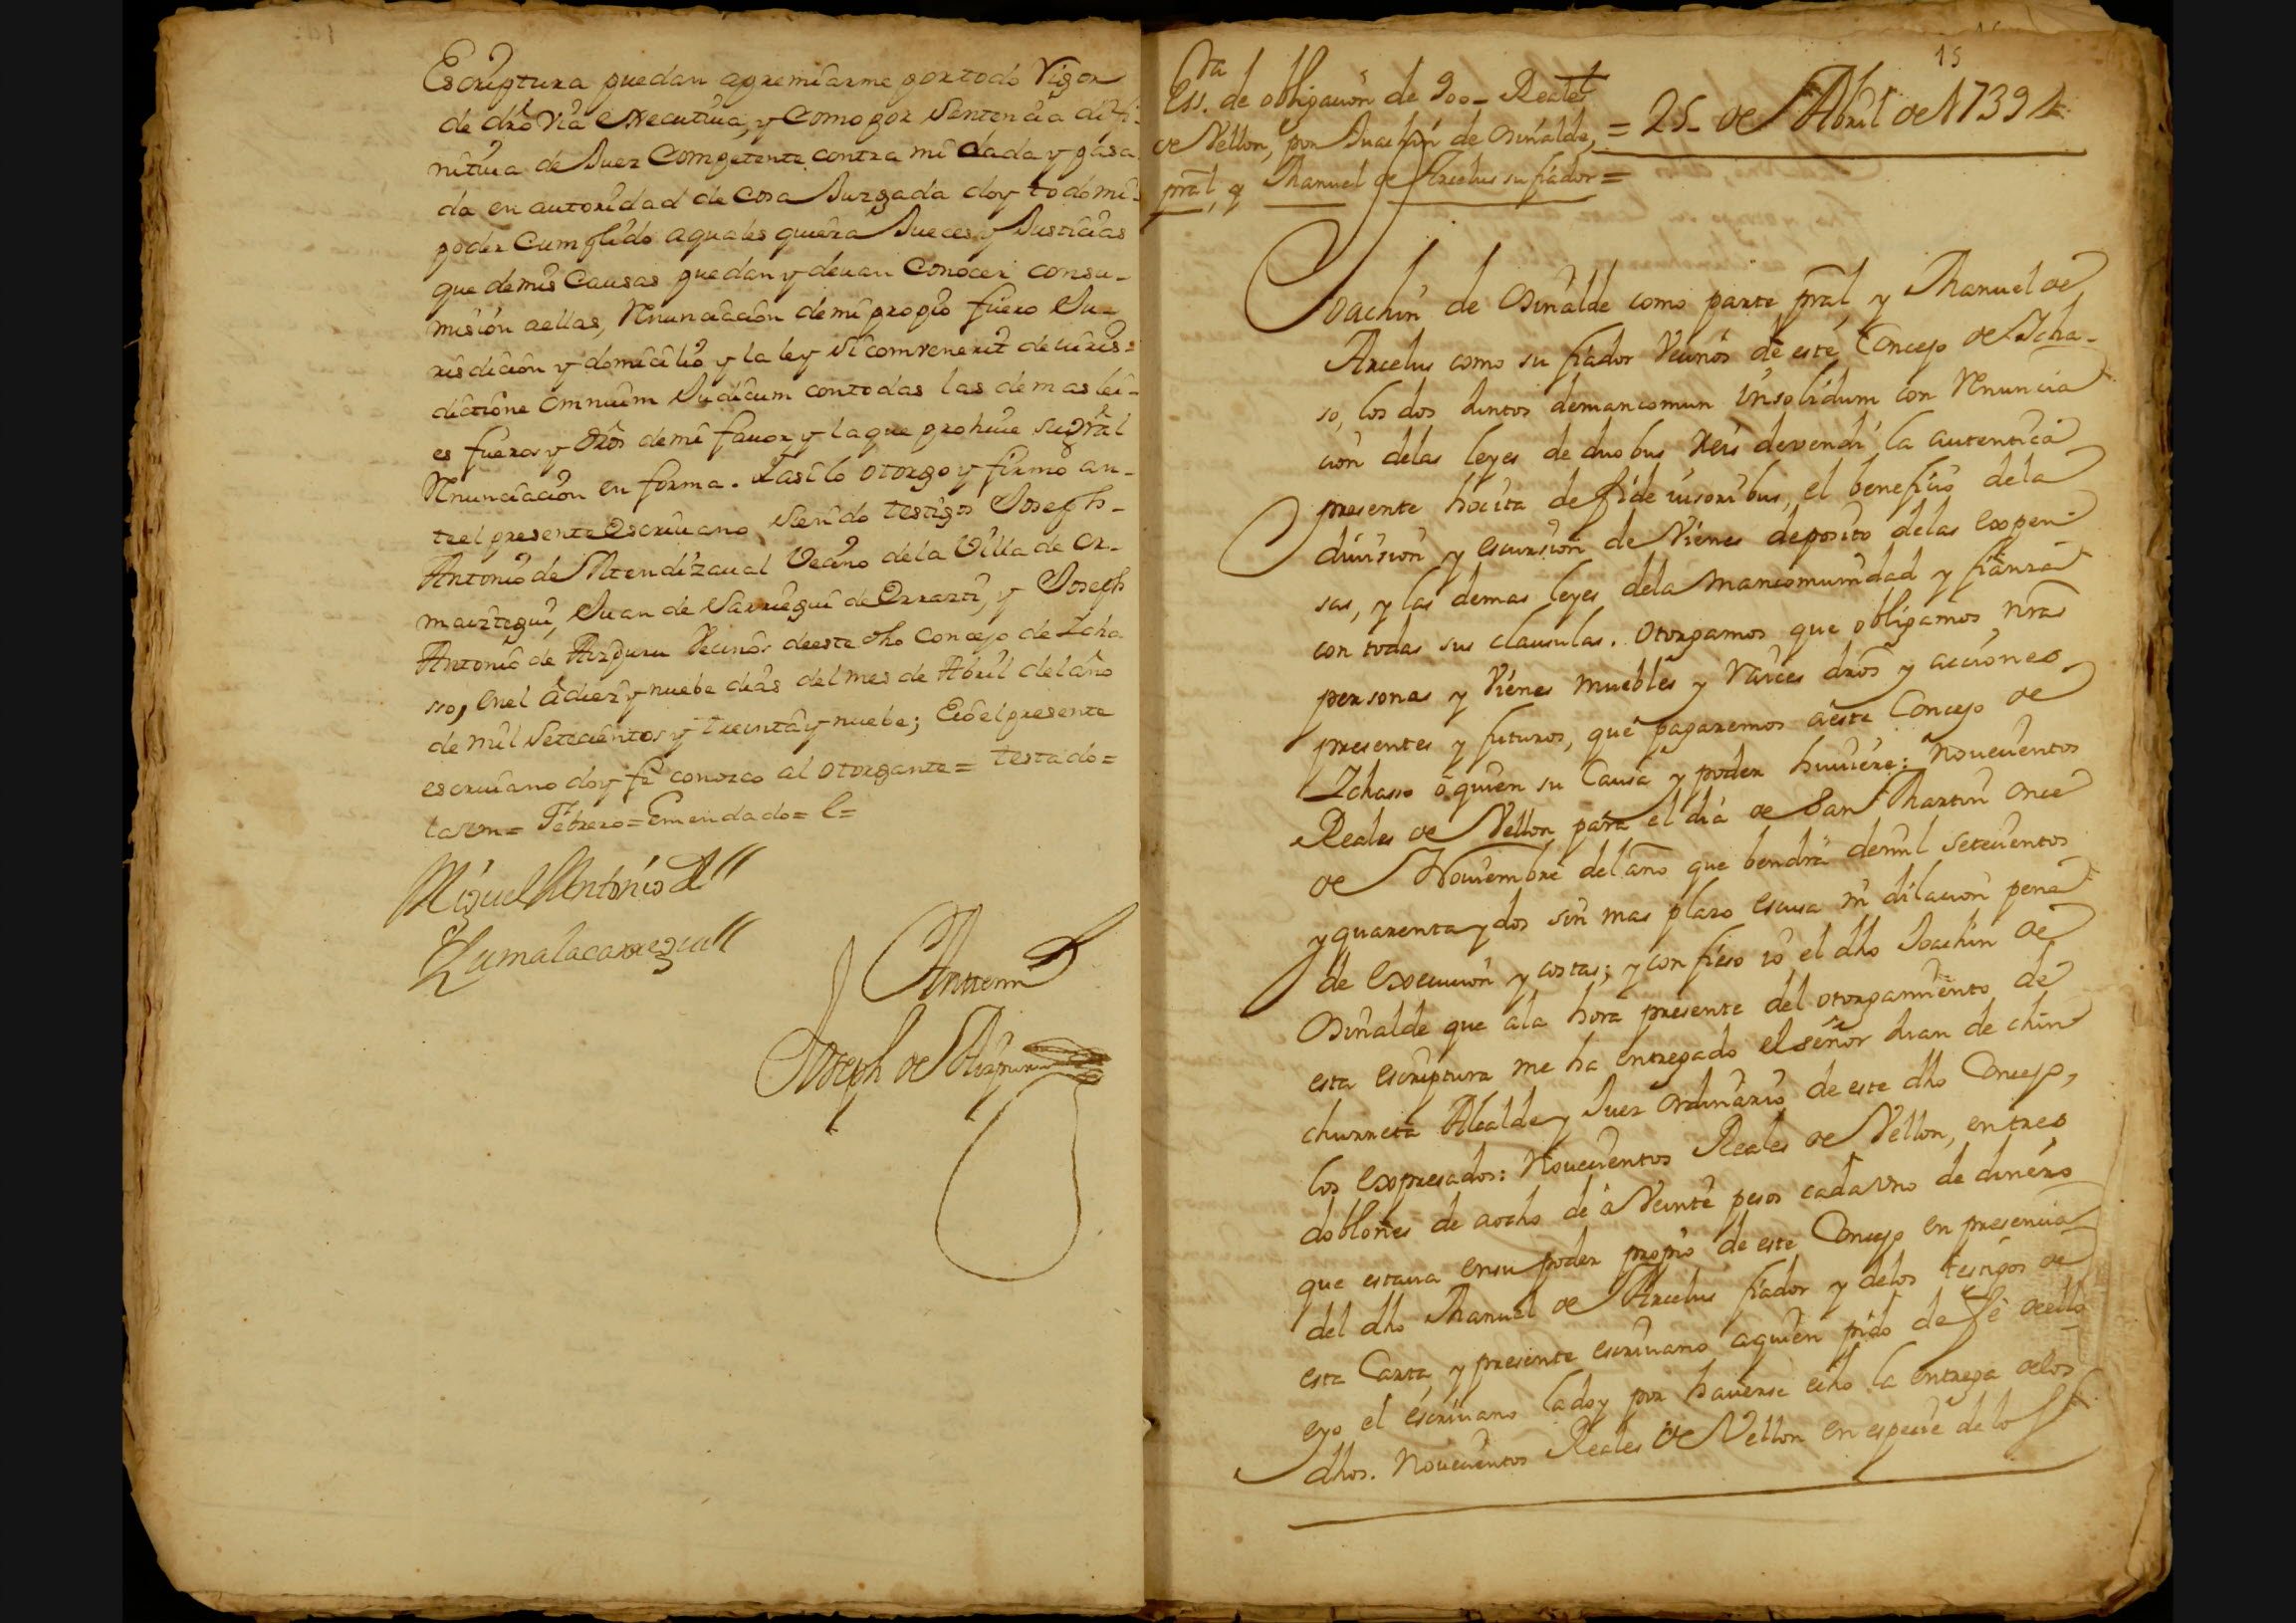 Escriptura puedan apremiarme por todo Rigor
de dr̃o Via executiva, y Como por Sentencia difi-
nitiua de Juez Competente contra mi dada y pasa
da en autoridad de Cosa Juzgada doy todo mi
poder Cumplido aquales quiera Jueces y Justicias
que demis Causas puedan y deuan Conocer consu-
mision aellas, Renunciacion demi propio fuero Ju-
risdicion y domicilio y la ley Si combenerit de iuris-
dictione omnium Judicum contodas las demas lei-
es fueros y dr̃os demi fauor y laque prohiue su gr̃al
Renunciacion en forma. Y asi lo otorgo y firmo an-
teel presente Escriuano Siendo testigos Joseph-
Antonio de Mendizaual Vecino dela Villa de Or-
maiztegui, Juan de Sarriegui de Errarti, y Joseph
Antonio de Aizpuru Vecinos deeste dho Concejo de Icha
sso, enel a diez y nuebe dias del mes de Abril del año
de mil Setecientos y treinta y nuebe; E yo el presente
escriuano doy fe conozco al otorgante= testado=
Febrero= Emendado= l=
Miguel Antonio
Zumalacarregui
Antemi
Joseph de Aizpuru
15
Ess.ra de obligacion de 900- Reales
de Vellon, por Juachin de Osinalde,
pral, y Manuel de Arcelus su fiador=
= 25- de Abril de 1739
Joachin de Osinalde como parte pral, y Manuel de
Arcelus como su fiador Vecinos de este Concejo de Icha-
so, los dos Juntos demancomun insolidum con Renuncia
cion delas leyes de duobus Reis devendi, la autentica
presente hocita de fide iusoribus, el beneficio dela
diuision y escursion de Vienes deposito delas expen-
sas, y las demas leyes dela mancomunidad y fianza
con todas sus clausulas. Otorgamos que obligamos nr̃as
personas y Vienes muebles y Raices dr̃os y acciones
presentes y futuros, que pagaremos aeste Concejo de
Ichasso o quien su Causa y poder huuiere: Nouecientos
Reales de Vellon para el dia de San Martin once
de Nouiembre del año que bendra demil setecientos
y quarenta y dos sin mas plazo escusa ni dilacion pena
de execucion y costas; y confieso yo el dho Joachin de
Osinalde que ala hora presente del otorgamiento de
esta escriptura me ha entregado el señor Juan de chin
churreta Alcalde y Juez ordinario de este dho Concejo,
los expresados: Nouecientos Reales de Vellon, en tres
doblones de aocho de a Veinte pesos cadavno de dinero
que estaua ensu poder propio de este Concejo en presencia
del dho Manuel de Arcelus fiador y delos testigos de
esta Carta, y presente escriuano aquien pido de fe dello
eyo el escriuano la doy por hauerse echo la entrega delos
dhos. Nouecientos Reales de Vellon en especie de los